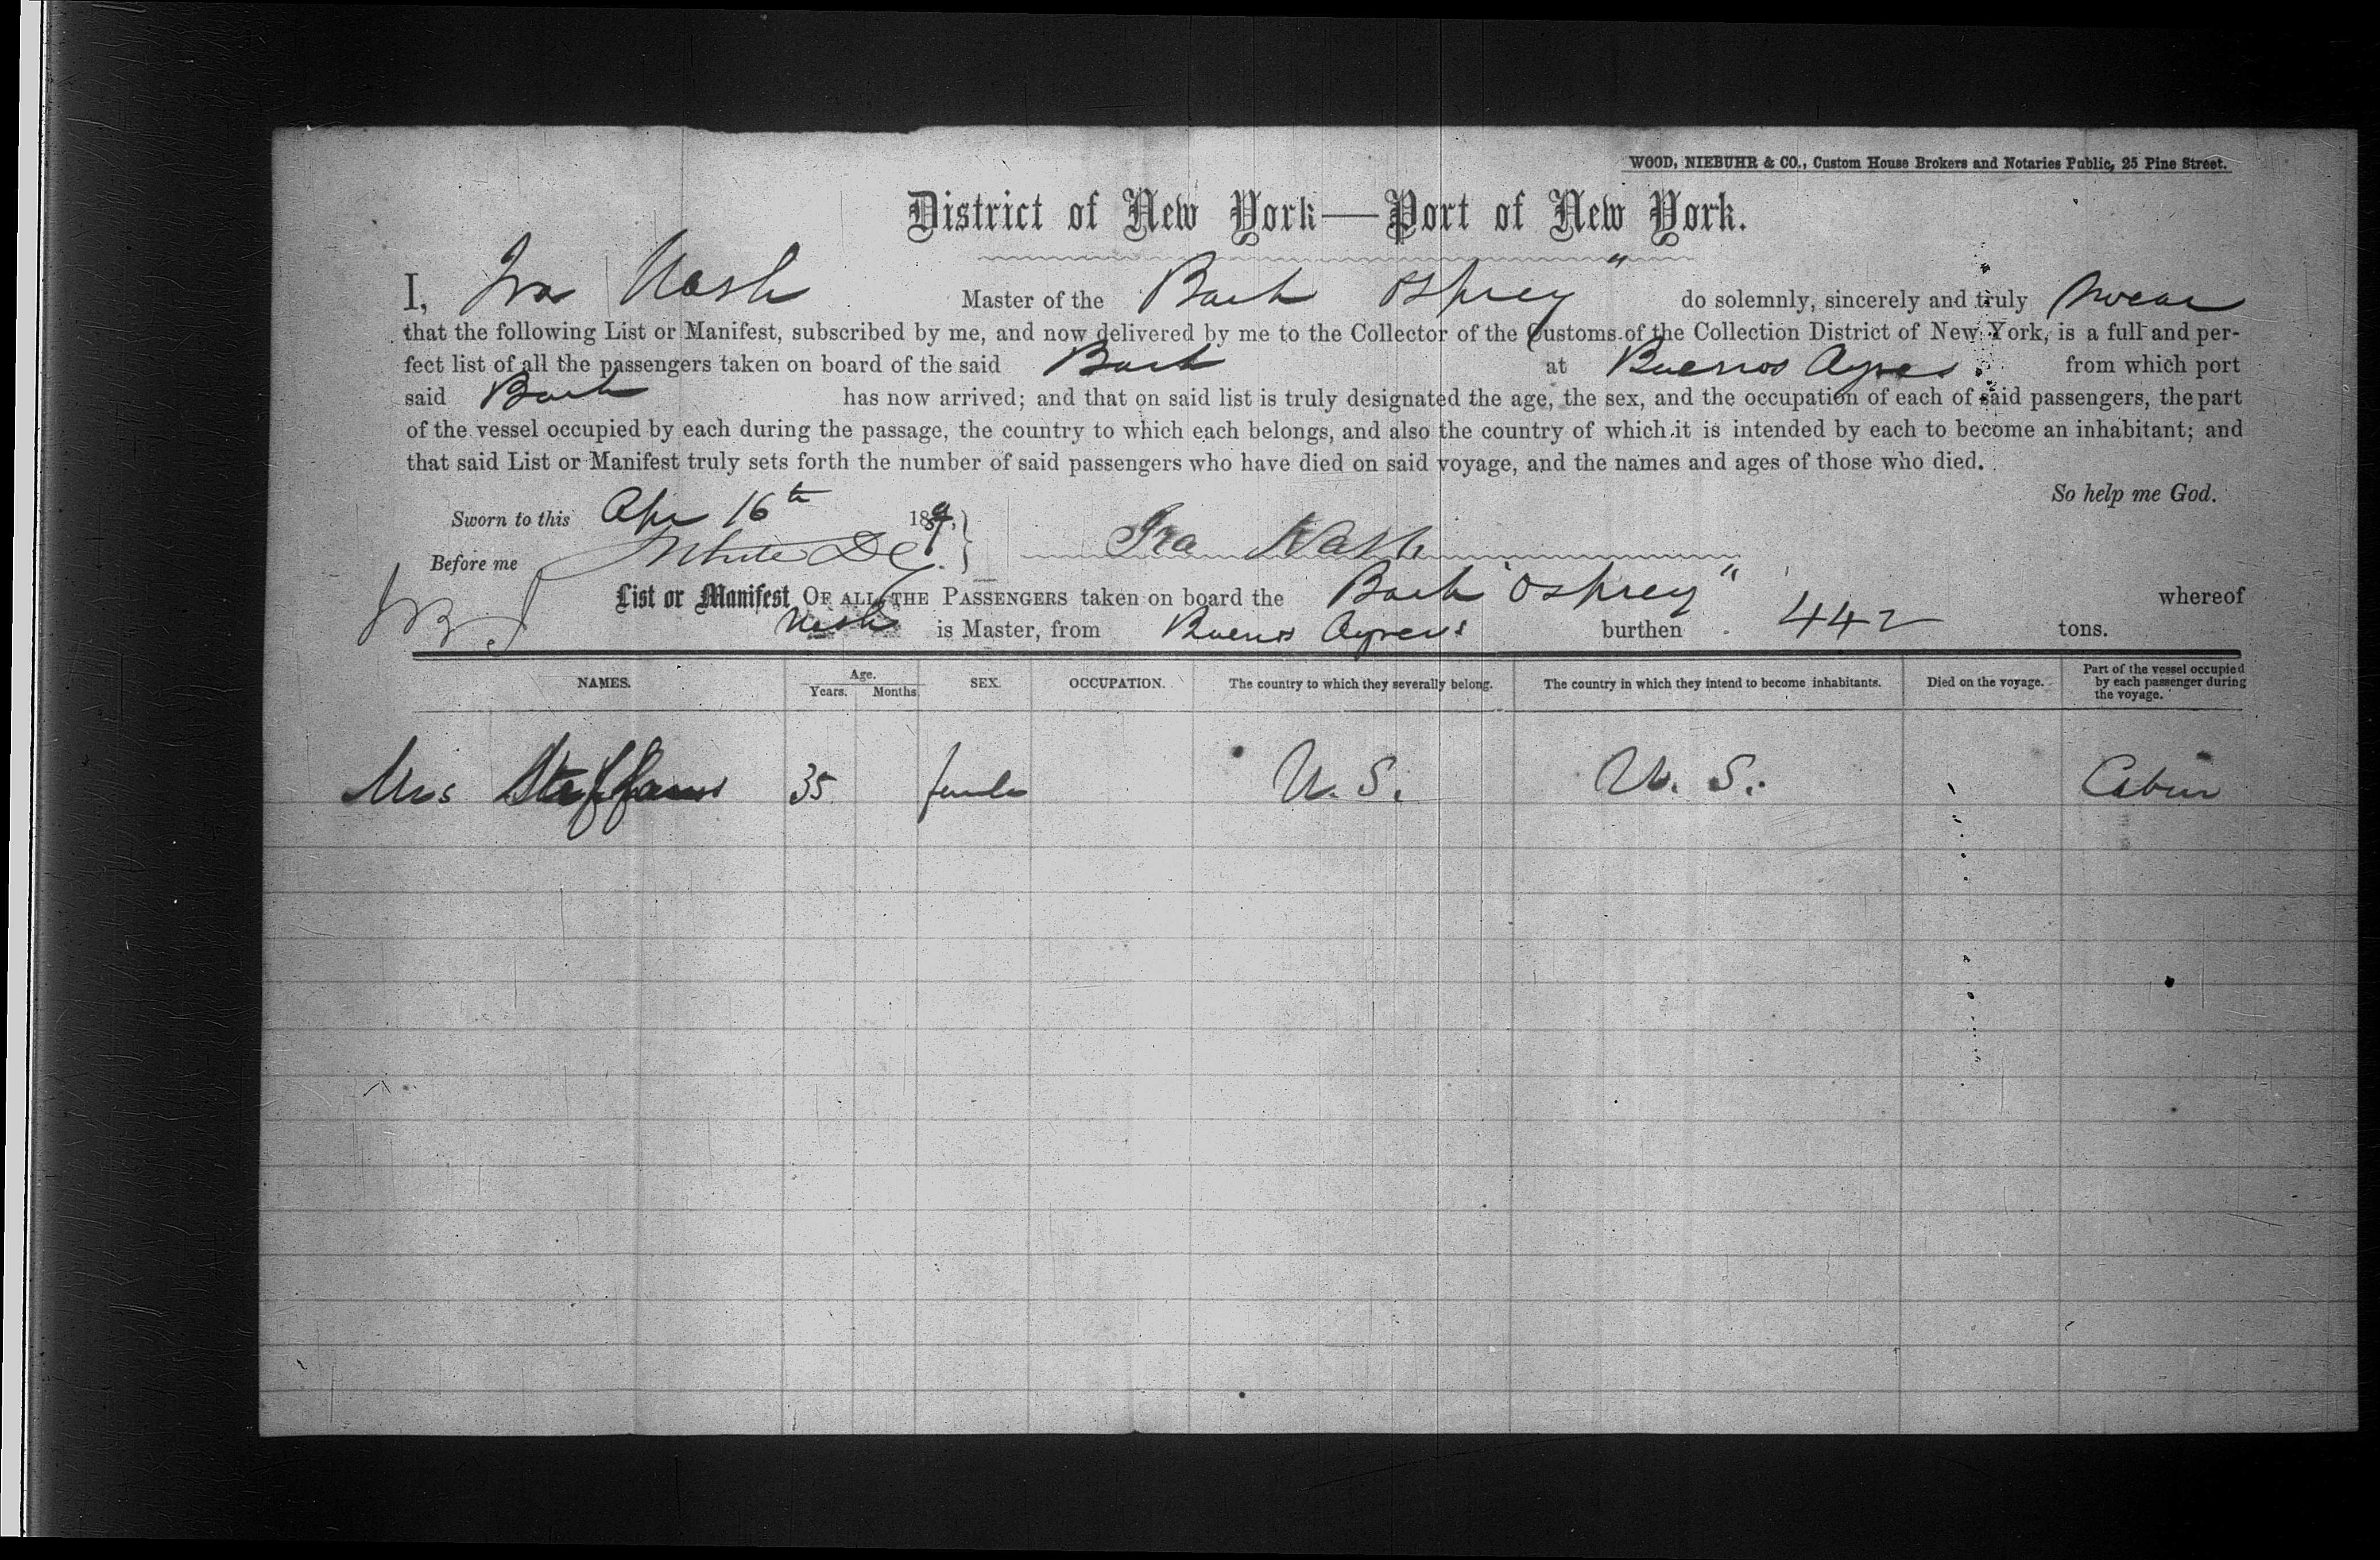 WOOD, NIEBUHR & CO., Custom House Brokers and Notaries Public, 25 Pine Street.
District of New York—Port of New York.
I, Ira Nash Master of the Bark Osprey" do solemnly, sincerely and truly swear
that the following List or Manifest, subscribed by me, and now delivered by me to the Collector of the Customs of the Collection District of New York, is a full and per-
fect list of all the passengers taken on board of the said Bark at Buenos Ayres from which port
said Bark has now arrived; and that on said list is truly designated the age, the sex, and the occupation of each of said passengers, the part
of the vessel occupied by each during the passage, the country to which each belongs, and also the country of which it is intended by each to become an inhabitant; and
that said List or Manifest truly sets forth the number of said passengers who have died on said voyage, and the names and ages of those who died.
So help me God.
Sworn to this Apr 16th 189
Before me White Ira Nash
List or Manifest OF ALL THE PASSENGERS taken on board the Bark "Osprey" whereof
Nash is Master, from Buenos Ayres burthen 442 tons.
NAMES. Age. Years. Months. SEX. OCCUPATION. The country to which they severally belong. The country in which they intend to become inhabitants. Died on the voyage. Part of the vessel occupied by each passenger during the voyage.
Mrs Steffans 35 female U. S. U. S. Cabin